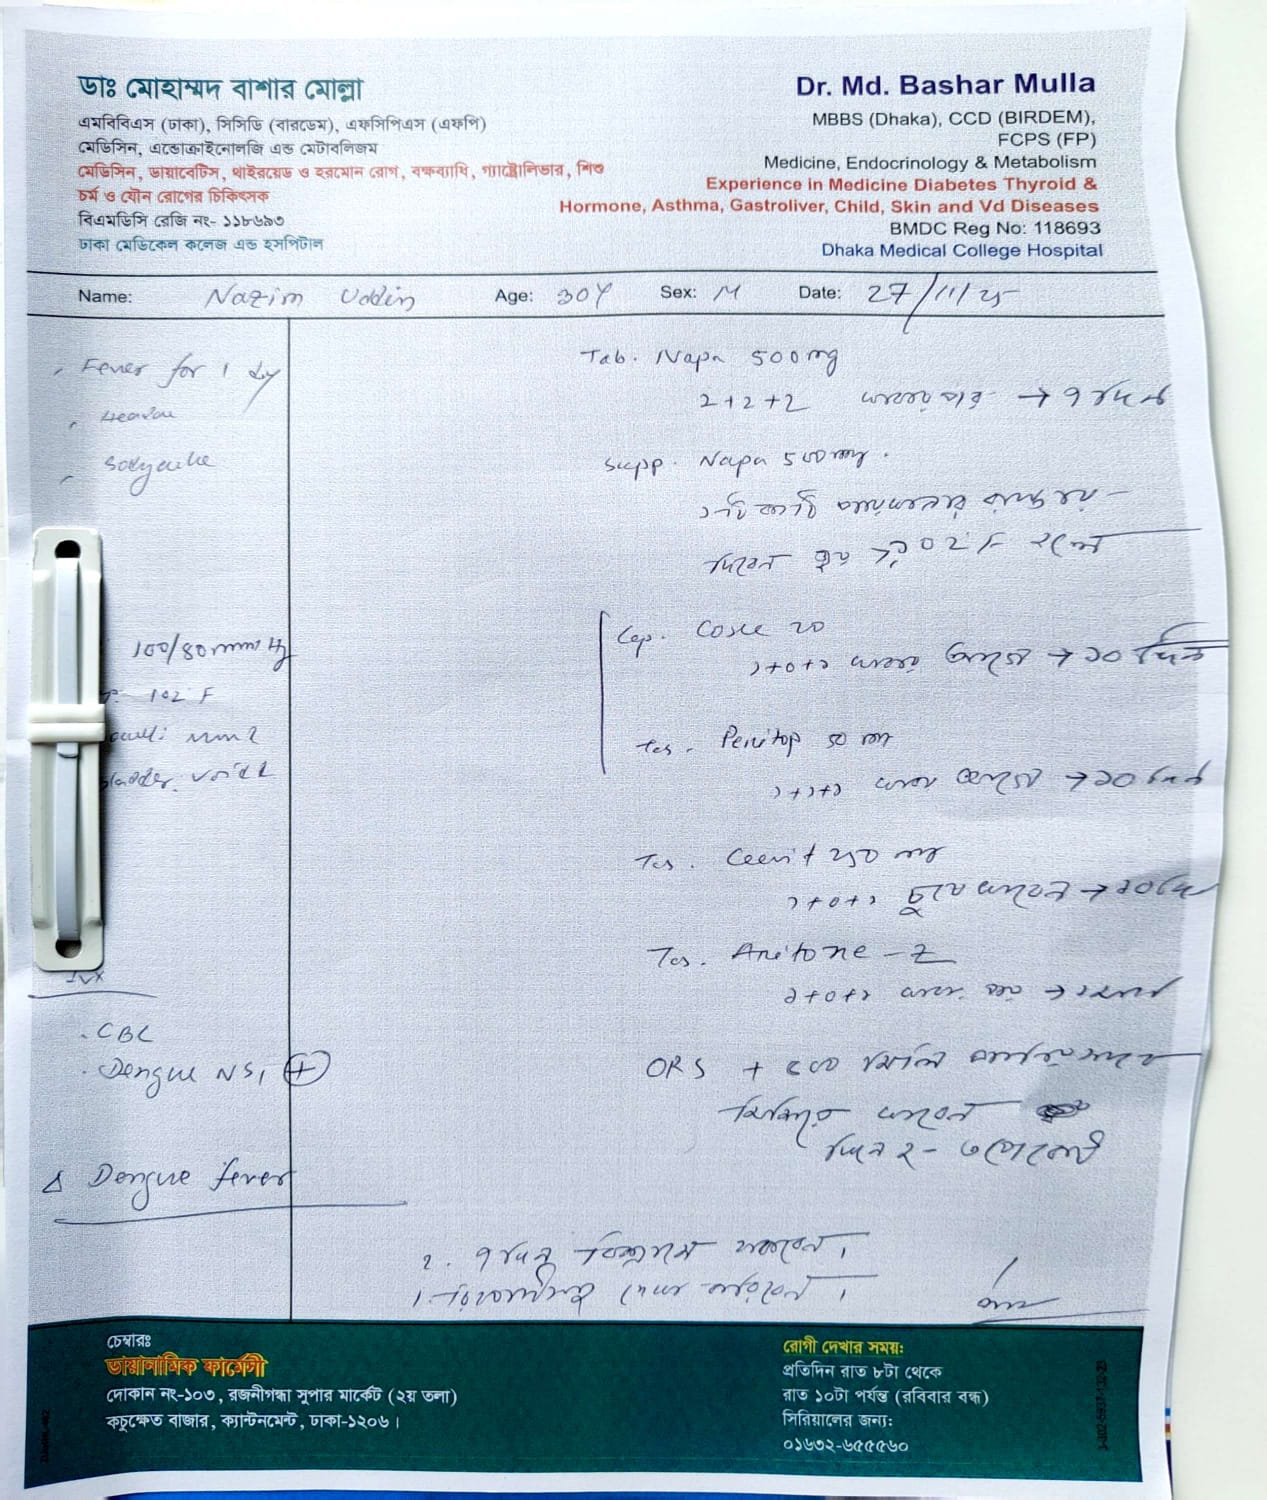 ডাঃ মোহাম্মদ বাশার মোল্লা
এমবিবিএস (ঢাকা), সিসিডি (বারডেম), এফসিপিএস (এফপি)
মেডিসিন, এন্ডোক্রাইনোলজি এন্ড মেটাবলিজম
মেডিসিন, ডায়াবেটিস, থাইরয়েড ও হরমোন রোগ, বক্ষব্যাধি, গ্যাষ্ট্রোলিভার, শিশু
চর্ম ও যৌন রোগের চিকিৎসক
বিএমডিসি রেজি নং- ১১৮৬৯৩
ঢাকা মেডিকেল কলেজ এন্ড হসপিটাল
Dr. Md. Bashar Mulla
MBBS (Dhaka), CCD (BIRDEM),
FCPS (FP)
Medicine, Endocrinology & Metabolism
Experience in Medicine Diabetes Thyroid &
Hormone, Asthma, Gastroliver, Child, Skin and Vd Diseases
BMDC Reg No: 118693
Dhaka Medical College Hospital
Name: Nazim Uddin Age: 30Y Sex: M Date: 27/11/25
Fever for 1 day
Bodyache
100/80 mmHg
102 F
IVX
. CBC
. Dengue NS1 (+)
Δ Dengue fever
Tab. Napa 500 mg
2+2+2 → ৭ দিন
Supp. Napa 500 mg.
১টি কাঠি পায়খানার রাস্তায়
দিবেন জ্বর >১০২°F হলে
Cap. 20
১+০+১ খাবার আগে → ১০ দিন
50 mg
১+১+১ → ১০ দিন
Ceevit 250 mg
১+০+১ চুষে খাবেন → ১০ দিন
Aritone - Z
১+০+১ খাবার পর → ১ মাস
ORS + ৫০০ মিলি পানির সাথে
মিশিয়ে খাবেন
দিনে ২-৩ প্যাকেট
2. ৭ দিন বিশ্রামে থাকবেন।
চেম্বারঃ
ডায়ানামিক ফার্মেসী
দোকান নং-১০৩, রজনীগন্ধা সুপার মার্কেট (২য় তলা)
কচুক্ষেত বাজার, ক্যান্টনমেন্ট, ঢাকা-১২০৬।
রোগী দেখার সময়ঃ
প্রতিদিন রাত ৮টা থেকে
রাত ১০টা পর্যন্ত (রবিবার বন্ধ)
সিরিয়ালের জন্য:
০১৬৩২-৬৫৫৫৬০